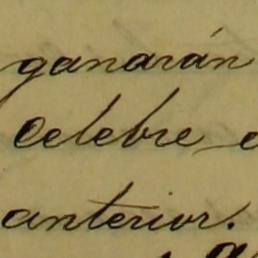 ganarán
celebre
anterior.